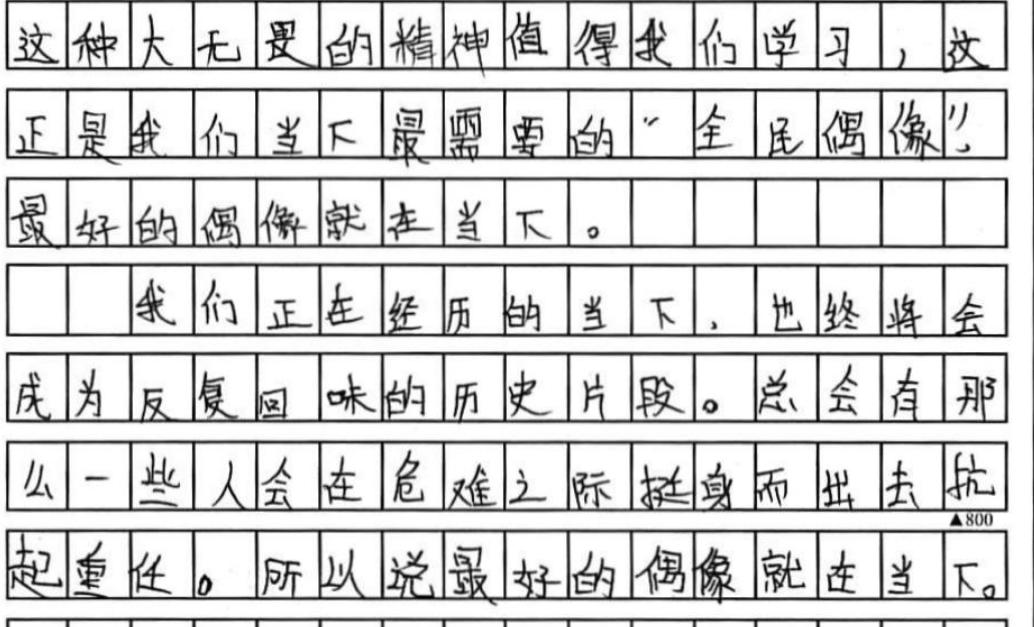 这种大无畏的精神值得我们学习，这
正是我们当下最需要的“全民偶像”，
最好的偶像就在当下。
我们正在经历的当下，也终将会
成为反复回味的历史片段。总会有那
么一些人会在危难之际挺身而出去抗
▲800
起重任。所以说最好的偶像就在当下。